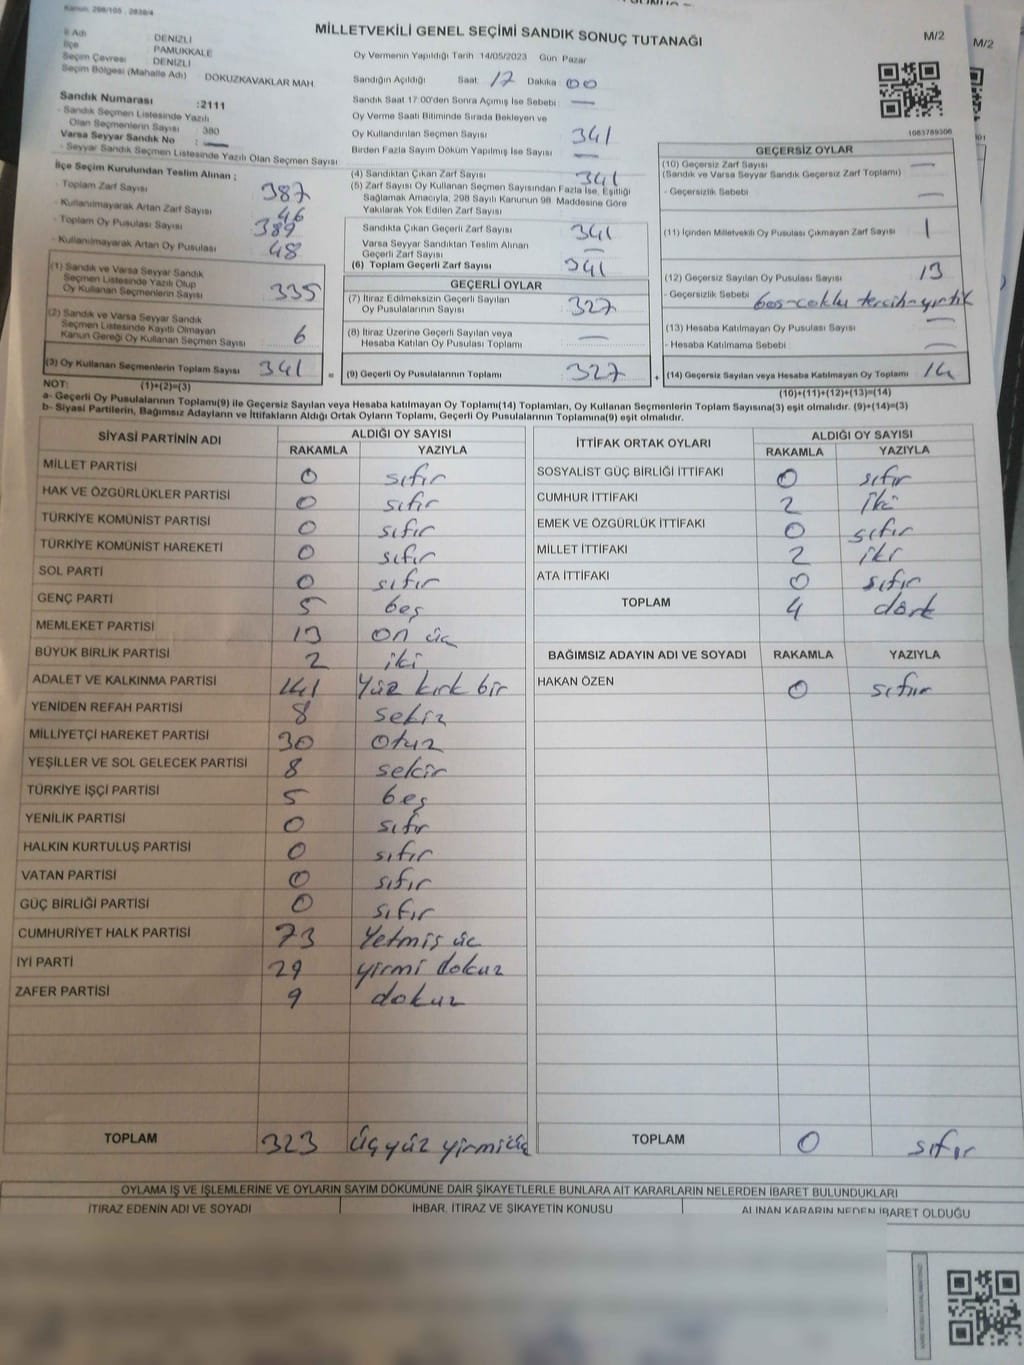 Kanun, 298/105 , 2839/4
MİLLETVEKİLİ GENEL SEÇİMİ SANDIK SONUÇ TUTANAĞI
M/2
M/2
İl Adı DENİZLİ
İlçe PAMUKKALE
Seçim Çevresi DENİZLİ
Seçim Bölgesi (Mahalle Adı) : DOKUZKAVAKLAR MAH
Sandık Numarası :2111
- Sandık Seçmen Listesinde Yazılı
Olan Seçmenlerin Sayısı : 380
Varsa Seyyar Sandık No : —
- Seyyar Sandık Seçmen Listesinde Yazılı Olan Seçmen Sayısı
Oy Vermenin Yapıldığı Tarih 14/05/2023 Gün Pazar
Sandığın Açıldığı Saat 17 Dakika 00
Sandık Saat 17:00'den Sonra Açımış İse Sebebi —
Oy Verme Saati Bitiminde Sırada Bekleyen ve
Oy Kullandırılan Seçmen Sayısı 341
Birden Fazla Sayım Döküm Yapılmış İse Sayısı —
1083789306
İlçe Seçim Kurulundan Teslim Alınan ;
- Toplam Zarf Sayısı 387
- Kullanılmayarak Artan Zarf Sayısı 46
- Toplam Oy Pusulası Sayısı 389
- Kullanılmayarak Artan Oy Pusulası 48
(1) Sandık ve Varsa Seyyar Sandık
Seçmen Listesinde Yazılı Olup
Oy Kullanan Seçmenlerin Sayısı 335
(2) Sandık ve Varsa Seyyar Sandık
Seçmen Listesinde Kayıtlı Olmayan
Kanun Gereği Oy Kullanan Seçmen Sayısı 6
(3) Oy Kullanan Seçmenlerin Toplam Sayısı 341 =
(4) Sandıktan Çıkan Zarf Sayısı 341
(5) Zarf Sayısı Oy Kullanan Seçmen Sayısından Fazla İse, Eşitliği
Sağlamak Amacıyla, 298 Sayılı Kanunun 98. Maddesine Göre
Yakılarak Yok Edilen Zarf Sayısı
Sandıkta Çıkan Geçerli Zarf Sayısı 341
Varsa Seyyar Sandıktan Teslim Alınan
Geçerli Zarf Sayısı —
(6) Toplam Geçerli Zarf Sayısı 341
GEÇERLİ OYLAR
(7) İtiraz Edilmeksizin Geçerli Sayılan
Oy Pusulalarının Sayısı 327
(8) İtiraz Üzerine Geçerli Sayılan veya
Hesaba Katılan Oy Pusulası Toplamı —
(9) Geçerli Oy Pusulalarının Toplamı 327 +
GEÇERSİZ OYLAR
(10) Geçersiz Zarf Sayısı —
(Sandık ve Varsa Seyyar Sandık Geçersiz Zarf Toplamı)
- Geçersizlik Sebebi —
(11) İçinden Milletvekili Oy Pusulası Çıkmayan Zarf Sayısı 1
(12) Geçersiz Sayılan Oy Pusulası Sayısı 13
- Geçersizlik Sebebi boş-çoklu tercih-yırtık
(13) Hesaba Katılmayan Oy Pusulası Sayısı —
- Hesaba Katılmama Sebebi —
(14) Geçersiz Sayılan veya Hesaba Katılmayan Oy Toplamı 14
NOT: (1)+(2)=(3) (10)+(11)+(12)+(13)=(14)
a- Geçerli Oy Pusulalarının Toplamı(9) ile Geçersiz Sayılan veya Hesaba katılmayan Oy Toplamı(14) Toplamları, Oy Kullanan Seçmenlerin Toplam Sayısına(3) eşit olmalıdır. (9)+(14)=(3)
b- Siyasi Partilerin, Bağımsız Adayların ve İttifakların Aldığı Ortak Oyların Toplamı, Geçerli Oy Pusulalarının Toplamına(9) eşit olmalıdır.
SİYASİ PARTİNİN ADI ALDIĞI OY SAYISI
RAKAMLA YAZIYLA
MİLLET PARTİSİ 0 sıfır
HAK VE ÖZGÜRLÜKLER PARTİSİ 0 sıfır
TÜRKİYE KOMÜNİST PARTİSİ 0 sıfır
TÜRKİYE KOMÜNİST HAREKETİ 0 sıfır
SOL PARTİ 0 sıfır
GENÇ PARTİ 5 beş
MEMLEKET PARTİSİ 13 on üç
BÜYÜK BİRLİK PARTİSİ 2 iki
ADALET VE KALKINMA PARTİSİ 141 yüz kırk bir
YENİDEN REFAH PARTİSİ 8 sekiz
MİLLİYETÇİ HAREKET PARTİSİ 30 otuz
YEŞİLLER VE SOL GELECEK PARTİSİ 8 sekiz
TÜRKİYE İŞÇİ PARTİSİ 5 beş
YENİLİK PARTİSİ 0 sıfır
HALKIN KURTULUŞ PARTİSİ 0 sıfır
VATAN PARTİSİ 0 sıfır
GÜÇ BİRLİĞİ PARTİSİ 0 sıfır
CUMHURİYET HALK PARTİSİ 73 Yetmiş üç
İYİ PARTİ 29 yirmi dokuz
ZAFER PARTİSİ 9 dokuz
TOPLAM 323 üç yüz yirmi üç
İTTİFAK ORTAK OYLARI ALDIĞI OY SAYISI
RAKAMLA YAZIYLA
SOSYALİST GÜÇ BİRLİĞİ İTTİFAKI 0 sıfır
CUMHUR İTTİFAKI 2 iki
EMEK VE ÖZGÜRLÜK İTTİFAKI 0 sıfır
MİLLET İTTİFAKI 2 iki
ATA İTTİFAKI 0 sıfır
TOPLAM 4 dört
BAĞIMSIZ ADAYIN ADI VE SOYADI RAKAMLA YAZIYLA
HAKAN ÖZEN 0 sıfır
TOPLAM 0 sıfır
OYLAMA İŞ VE İŞLEMLERİNE VE OYLARIN SAYIM DÖKÜMÜNE DAİR ŞİKAYETLERLE BUNLARA AİT KARARLARIN NELERDEN İBARET BULUNDUKLARI
İTİRAZ EDENİN ADI VE SOYADI İHBAR, İTİRAZ VE ŞİKAYETİN KONUSU ALINAN KARARIN NEDEN İBARET OLDUĞU